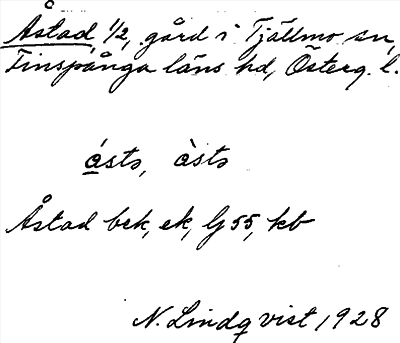 Åstad 1/2, gård i Tjällmo sn,
Finspånga läns hd, Österg. l.
ásta, àsta
Åstad bek, ek, lj 55, kb
N. Lindqvist 1928